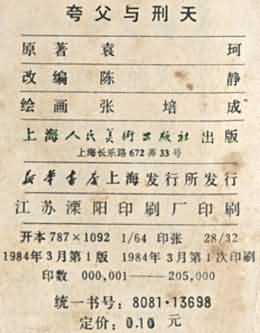 夸父与刑天
原著袁珂
改编陈静
绘画张培成
上海人民美术出版社出版
上海长乐路672弄33号
新华书店上海发行所发行
江苏溧阳印刷厂印刷
开本787×1092 1/64 印张 28/32
1984年3月第1版 1984年3月第1次印刷
印数 000,001——205,000
统一书号：8081·13698
定价：0.10元